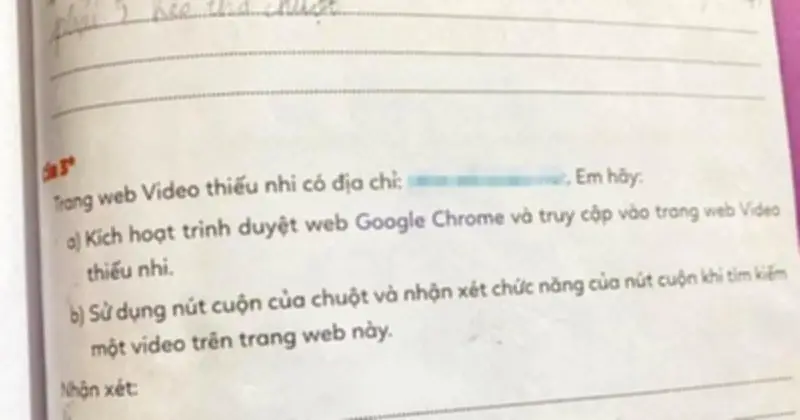 phải
Câu 5*
Trang web Video thiếu nhi có địa chỉ: . Em hãy:
a) Kích hoạt trình duyệt web Google Chrome và truy cập vào trang web Video
thiếu nhi.
b) Sử dụng nút cuộn của chuột và nhận xét chức năng của nút cuộn khi tìm kiếm
một video trên trang web này.
Nhận xét: